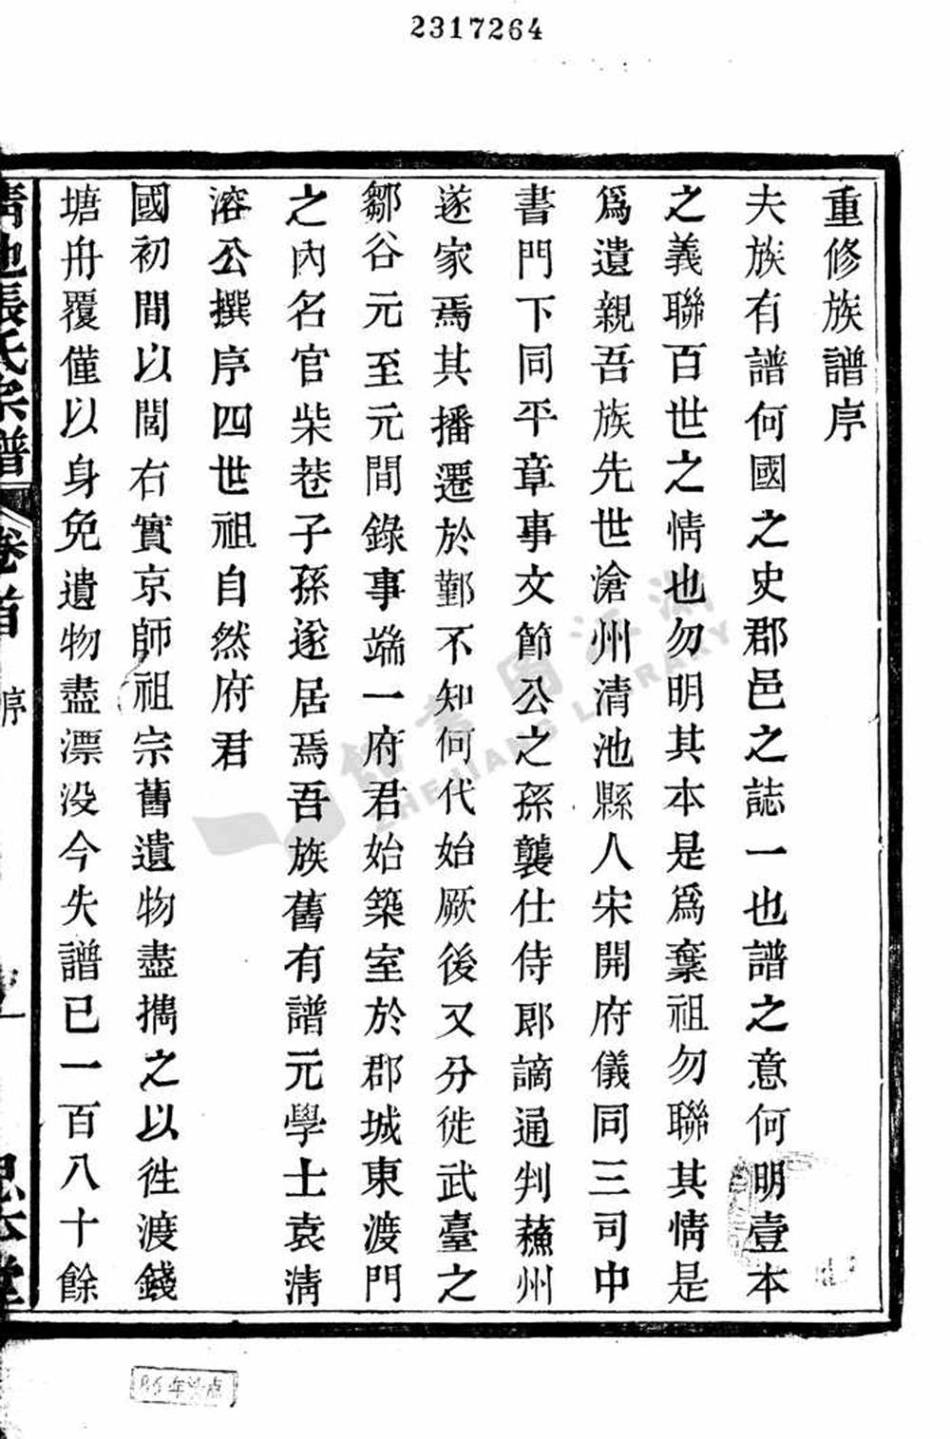 2317264
重修族譜序
夫族有譜何國之史郡邑之誌一也譜之意何明壹本
之義聯百世之情也勿明其本是爲棄祖勿聯其情是
爲遺親吾族先世滄州清池縣人宋開府儀同三司中
書門下同平章事文節公之孫襲仕侍郎謫通判蘓州
遂家焉其播遷於鄞不知何代始厥後又分徙武臺之
鄒谷元至元間錄事端一府君始築室於郡城東渡門
之內名官柴巷子孫遂居焉吾族舊有譜元學士袁淸
溶公撰序四世祖自然府君
國初間以閭右實京師祖宗舊遺物盡擕之以徃渡錢
塘舟覆僅以身免遺物盡漂没今失譜已一百八十餘
清池張氏宗譜
卷首
序
一
思本堂
浙江圖書館
ZHEJIANG LIBRARY